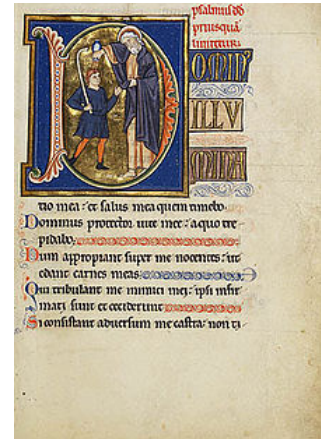 psalmus dd
priusquā
liniretur
DOMIN'
ILLU
MINA
tio mea: et salus mea quem timebo.
Dominus protector vite mee: a quo tre
pidabo;
Dum appropiant super me nocentes: ut
edant carnes meas.
Qui tribulant me inimici mei: ipsi infir
mati sunt et ceciderunt
Si consistant adversum me castra: non ti